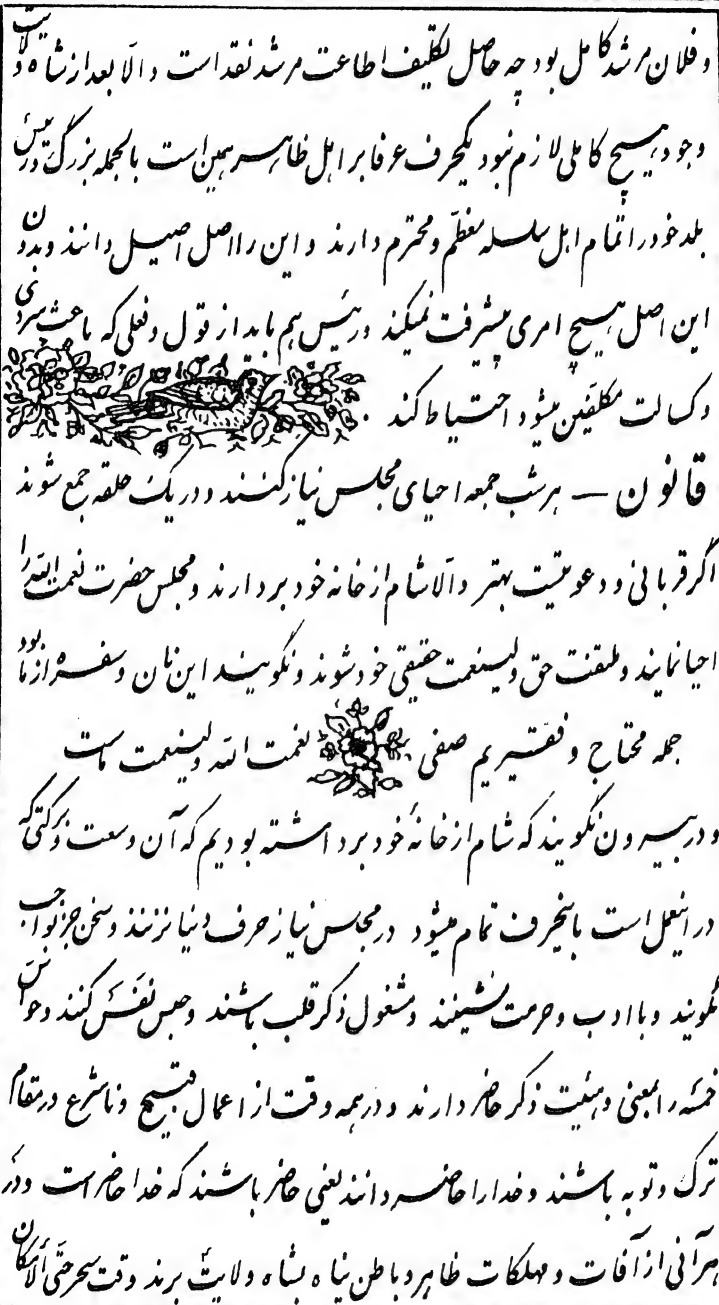 و فلان مرشد کامل بود چه حاصل تکلیف اطاعت مرشد نقد است و الا بعد از شاه ولایت
وجود هیچ کاملی لازم نبود یکحرف عرفا بر اهل ظاهر همین است بالجمله بزرگ و رئیس
بلد خود را تمام اهل سلسله معظّم و محترم دارند و این را اصل اصیل دانند و بدون
این اصل هیچ امری پیشرفت نمیکند و رئیس هم باید از قول و فعلی که باعث سردی
و کسالت مکلفین میشود احتیاط کند
قانون – هر شب جمعه احیای مجلس نیاز کنند و در یک حلقه جمع شوند
اگر قربانی و دعوتیست بهتر و الا شام از خانه خود بردارند و مجلس حضرت نعمت الله را
احیا نمایند و ملتفت حق ولینعمت حقیقی خود شوند و نگویند این نان و سفره از ما بود
جمله محتاج و فقیریم صفی نعمت الله ولینعمت ماست
و در بیرون نگویند که شام از خانهٔ خود برداشته بودیم که آن وسعت و برکتی که
در اینعمل است باینحرف تمام میشود در مجلس نیاز حرف دنیا نزنند و سخن جز بواجب
نگویند و با ادب و حرمت نشینند و مشغول ذکر قلب باشند و حبس نفس کنند و حواس
خمسه را بمعنی و هیئت ذکر حاضر دارند و در همه وقت از اعمال قبیح و نامشرع در مقام
ترک و توبه باشند و خدا را حاضر دانند یعنی حاضر باشند که خدا حاضر است و در
هر آنی از آفات و مهلکات ظاهر و باطن پناه بشاه ولایت برند وقت سحر حتی الامکان